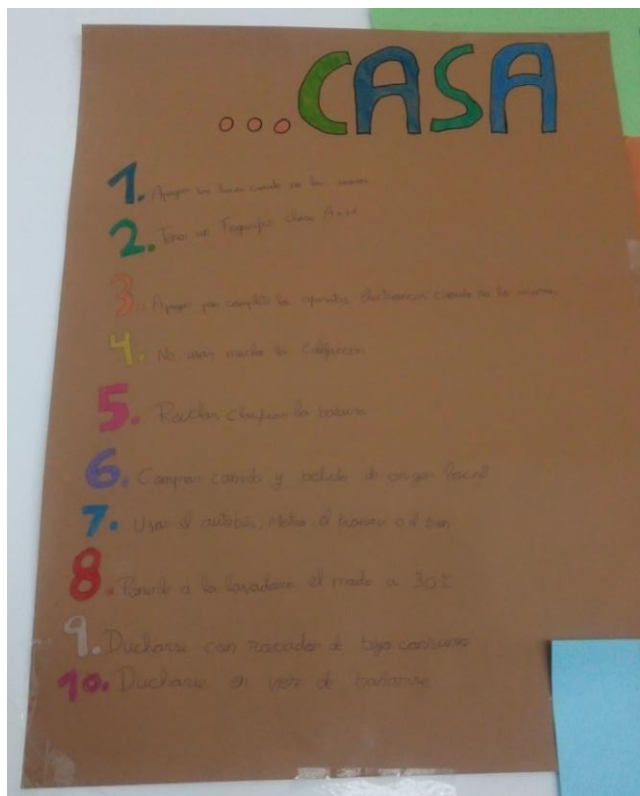 ...CASA
1. Apagar las luces cuando no las usamos
2. Tener un frigorífico clase A+++
3. Apagar por completo los aparatos electronicos cuando no los usamos
4. No usar mucho la calefaccion
5. Reciclar la basura
6. Comprar comida y bebida de origen local
7. Usar el autobús, Metro, el tranvía o el bus
8. Ponerle a la lavadora el modo a 30º
9. Ducharse con rociador de bajo consumo
10. Ducharse en vez de bañarse